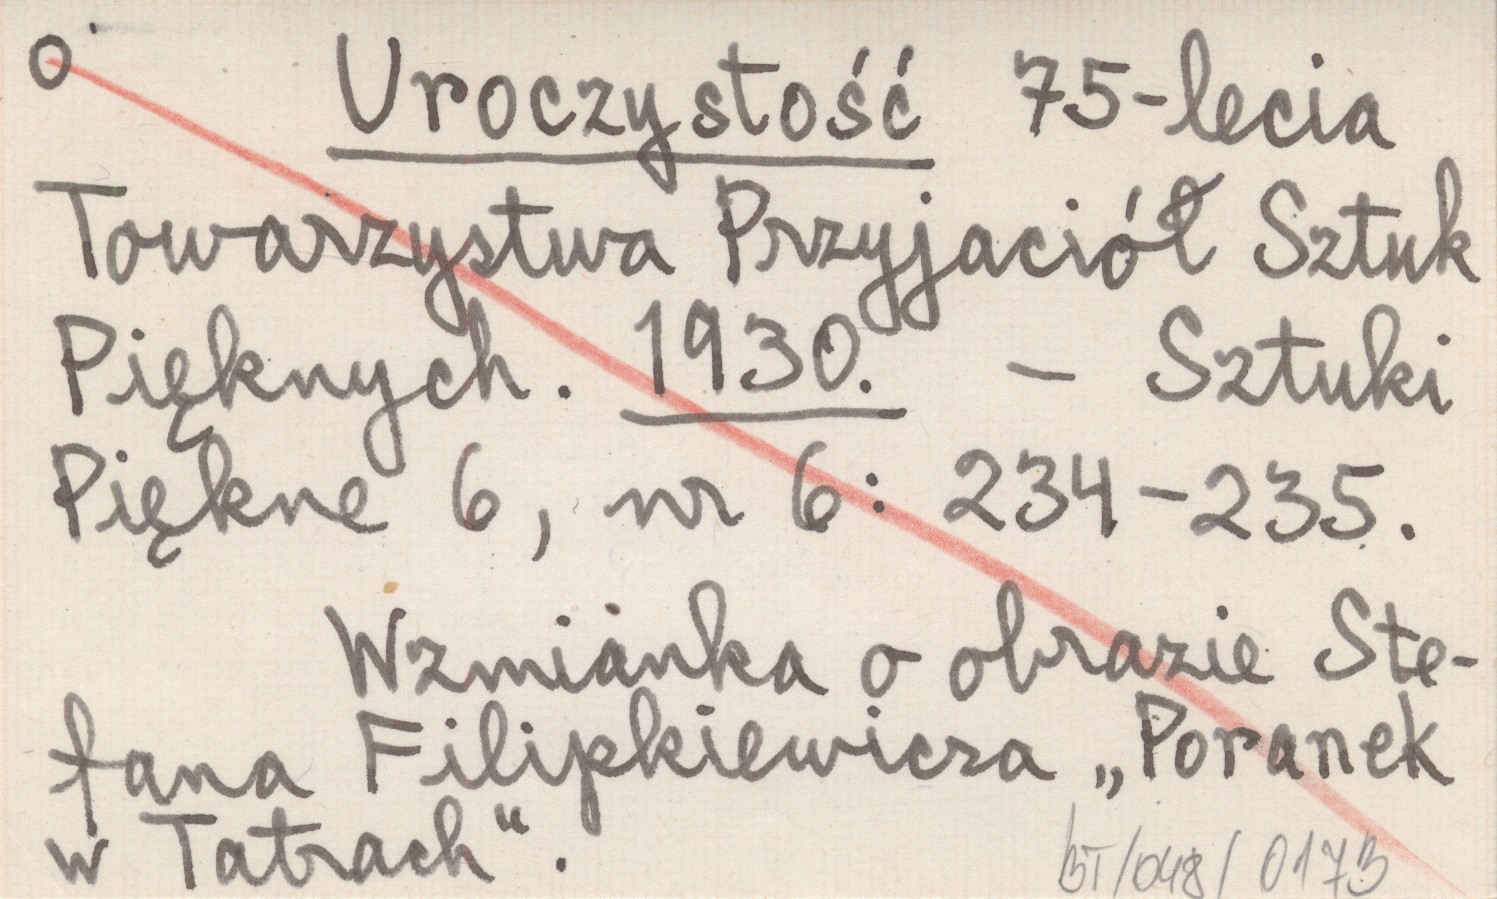 O Uroczystość 75-lecia
Towarzystwa Przyjaciół Sztuk
Pięknych. 1930. – Sztuki
Piękne 6, nr 6: 234–235.
Wzmianka o obrazie Ste-
fana Filipkiewicza „Poranek
w Tatrach“.
BT/048/0173